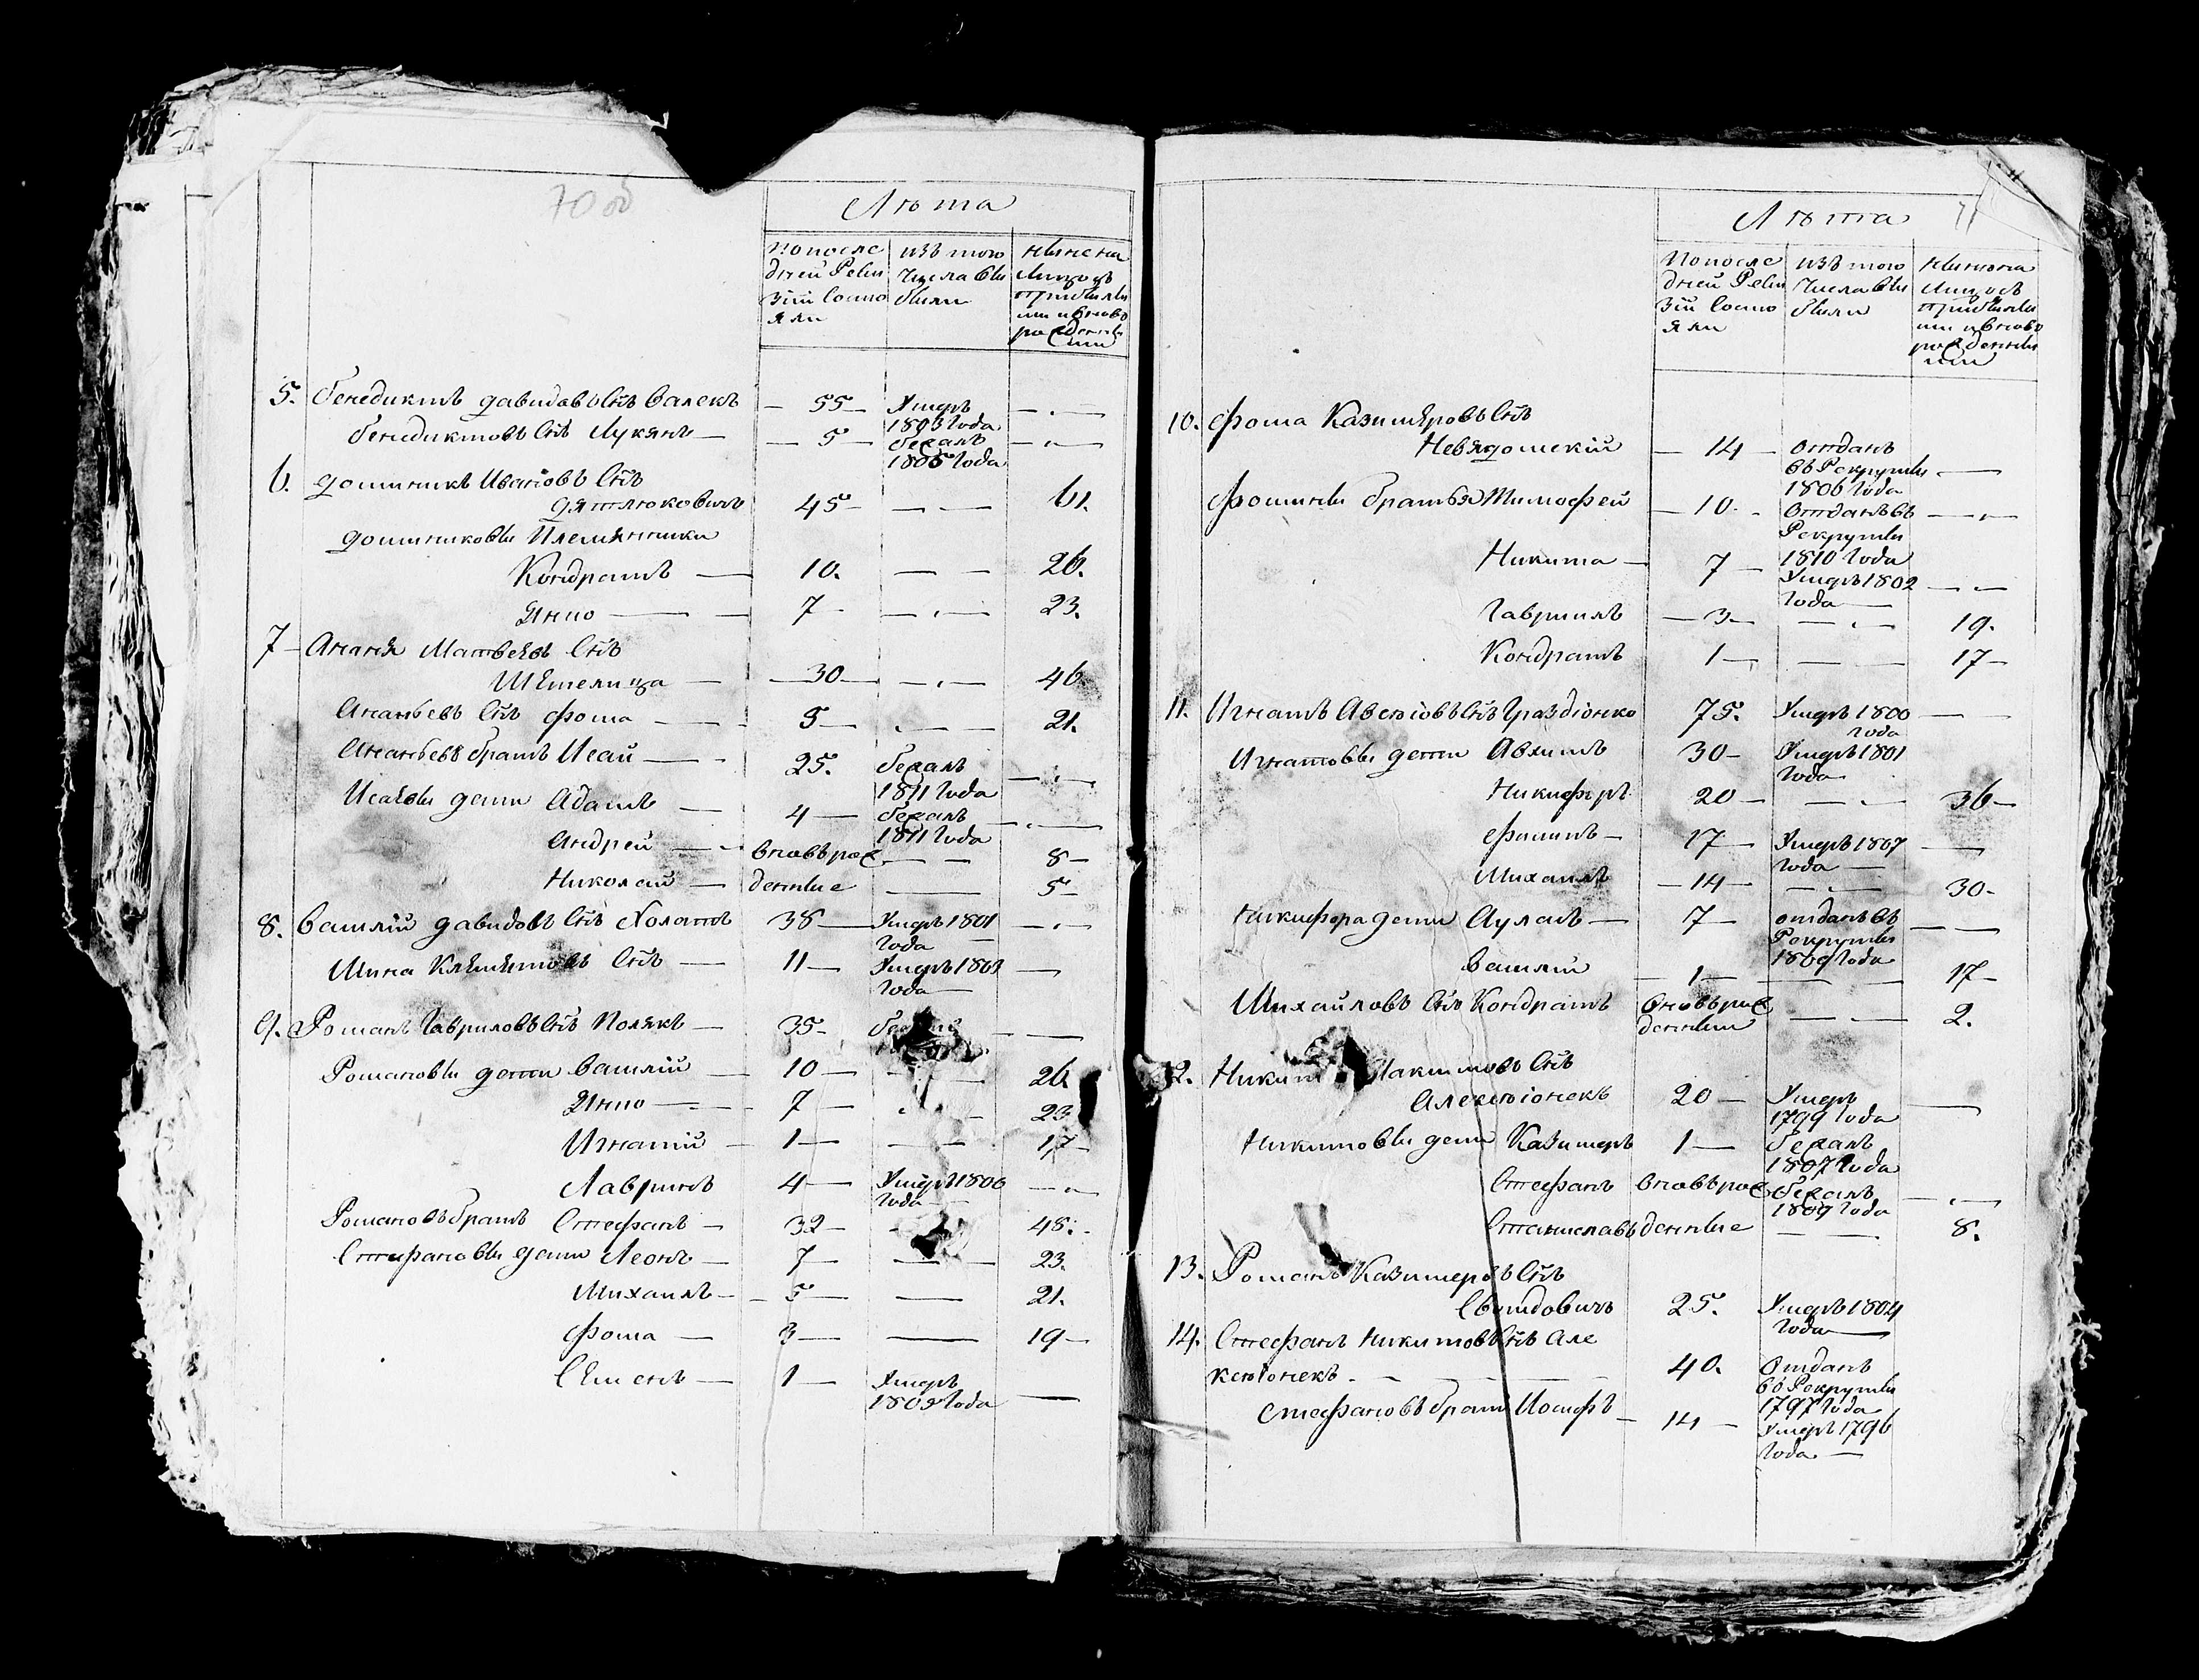 70 об
Лѣта
По после
дней Реви
зіи Состо
яли
изъ того
Числа вы
были
Ныне на
Лицо съ
прибылы
ми и вново
рожденны
ми
5. Бенедиктъ Давидовъ Снъ Валекъ — 55 — Умеръ — . —
1803 Года
Бенедиктовъ Снъ Лукянъ — 5 — бежалъ — . —
1805 Года
6. Доминикъ Ивановъ Снъ
Дятлюковичъ 45 — — . — 61.
Доминиковы Племянники
Кондратъ — 10. — — 26.
Янко — 7 — — . — 23.
7 — Ананя Матвеевъ Снъ
Шѣмелица — 30 — — . — 46
Ананьевъ Снъ Фома — 5 — . — 21.
Ананьевъ братъ Исай — 25. бежалъ — . —
1811 Года
Исаевы дети Адамъ — 4 — бежалъ — . —
1811 Года
Андрей — вновърож — — 8 —
Николай — денные — 5 —
8. Василій Давидовъ Снъ Холопъ 38 — Умеръ 1801 — . —
Года
Мина Клѣмѣтовъ Снъ — 11 — Умеръ 1801 —
Года —
9. Романъ Гавриловъ Снъ Полякъ — 35 — —
Романовы дети Василій — 10 — — 26.
Янко — 7 — — 23
Игнатій — 1 — — 17 —
Лавринъ 4 — Умеръ 1806 — . —
Года —
Романовъ братъ Стефанъ — 32 — — 48.
Стефановы дети Леонъ — 7 — — 23.
Михаилъ — 5 — — 21.
Фома — 3 — — 19 —
Сѣменъ — 1 — Умеръ —
1805 Года
Лѣта
71
По после
дней Реви
зій Состо
яли
изъ того
Числа вы
были
Ныне на
Лицо съ
прибылы
ми и вново
рожденны
ми
10. Фома Казимѣровъ Снъ
Невядомскій — 14 — Отданъ
въ Рекруты —
1806 Года
Фомины братья Тимофей — 10 — Отданъ въ — . —
Рекруты
1810 Года
Никита — 7 — Умеръ 1802 — . —
Года —
Гаврилъ — 3 — — . — 19.
Кондратъ 1 — — — 17 —
11. Игнатъ Авсюіовъ Снъ Граздіонко 75. Умеръ 1800 — —
Года
Игнатовы дети Авхимъ 30 — Умеръ 1801
Года
Никифоръ 20 — — . — 36 —
Филипъ — 17 — Умеръ 1807 —
Года —
Михаилъ — 14 — — . — 30 —
Никифора дети Ауласъ — 7 — отданъ въ — —
Рекруты
1809 Года
Василій — 1 — — 17 —
Михайловъ Снъ Кондратъ вновърож — . — 2.
денныи
12. Никита Макимовъ Снъ
Алексюіонекъ 20 — Умеръ —
1799 Года
Никитовы дети Казимеръ 1 — бежалъ
1807 Года
Стефанъ вновърож бежалъ — . —
1809 Года
Станиславъ денные — — 8.
13. Романъ Казимеровъ Снъ
Свитдовичъ 25. Умеръ 1804
Года —
14. Стефанъ Никитовъ Снъ Але
ксюіонекъ — 40. Отданъ
во Рекруты
1797 Года
Стефановъ братъ Иосифъ — 14 — Умеръ 1796
Года —